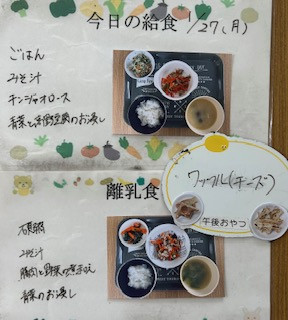 今日の給食 1/27(月)
ごはん
みそ汁
チンジャオロース
青菜と
のお浸し
ワッフル(チーズ)
午後おやつ
離乳食
みそ汁
豚肉と野菜の煮
青菜のお浸し